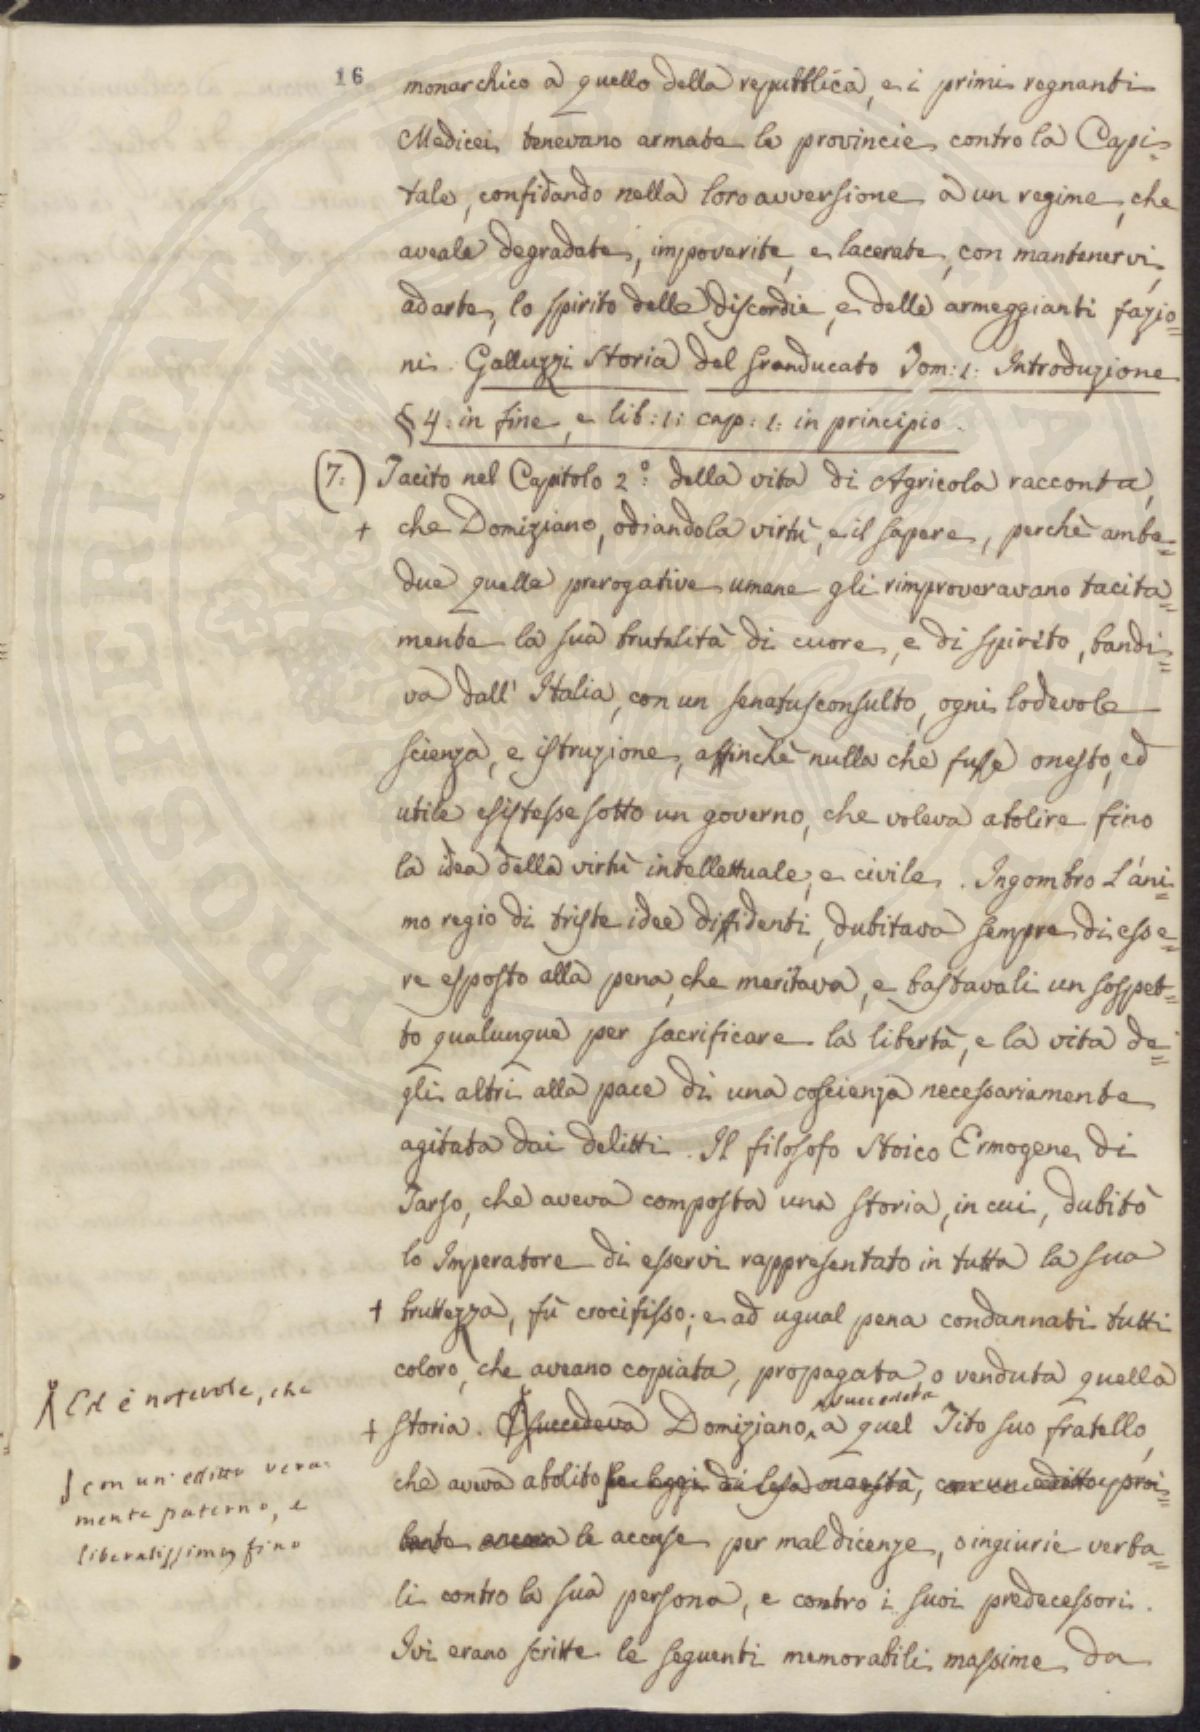 16
monarchico à quello della repubblica, e i primi regnanti
Medicei tenevano armate le provincie contro la Capi=
tale, confidando nella loro avversione a un regime, che
aveale degradate, impoverite, e lacerate, con mantenervi,
ad arte, lo spirito delle discordie, e delle armeggianti fazio=
ni. Galluzzi Storia del Granducato Tom: 1: Introduzione
§ 4: in fine, e lib: 1: cap: 1: in principio.
(7:) Tacito nel Capitolo 2º: della vita di Agricola racconta,
+ che Domiziano, odiando la virtù, e il sapere, perchè ambe=
due quelle prerogative umane gli rimproveravano tacita=
mente la sua brutalità di cuore, e di spirito, bandi=
va dall' Italia, con un senatusconsulto, ogni lodevole
scienza, e istruzione, affinchè nulla che fusse onesto, ed
utile esistesse sotto un governo, che voleva abolire fino
la idea della virtù intellettuale, e civile. Ingombro L'áni=
mo regio di triste idee diffidenti, dubitava sempre di esse=
re esposto alla pena, che meritava, e bastavali un sospet=
to qualunque per sacrificare la libertà, e la vita de=
gli altri alla pace di una coscienza necessariamente
agitata dai delitti. Il filosofo Stoico Ermogene di
Tarso, che aveva composta una storia, in cui, dubitò
lo Imperatore di esservi rappresentato in tutta la sua
+ bruttezza, fù crocifisso; e ad ugual pena condannati tutti
coloro, che aveano copiata, propagata, o venduta quella
Ed è notevole, che
succedeta
+ storia. succedeva Domiziano, a quel Tito suo fratello,
che aveva abolito le leggi di lesa maestà, con un editto proi=
con un' editto vera=
mente paterno, e
liberalissimo, fino
bente ancora le accuse per maldicenze, o ingiurie verba=
li contro la sua persona, e contro i suoi predecessori.
Ivi erano scritte le seguenti memorabili massime da